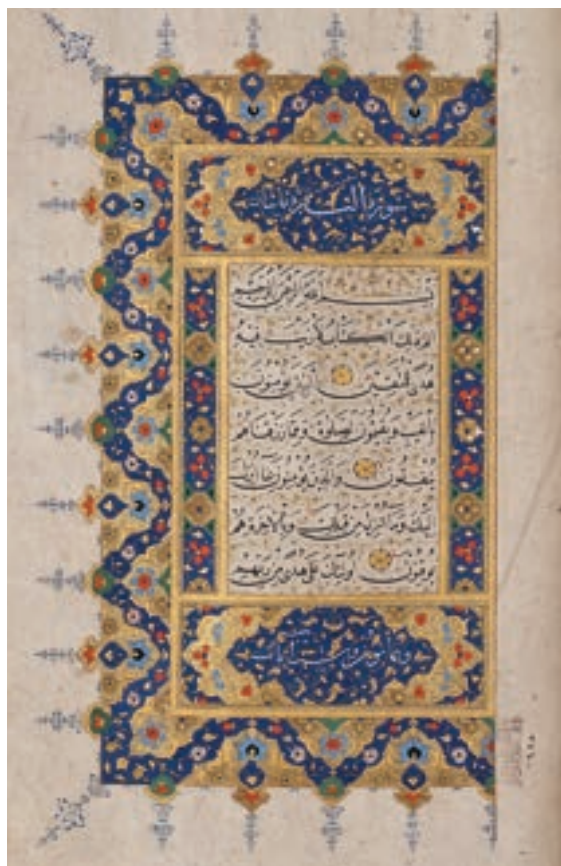 سورة البقرة
بسم الله الرحمن الرحيم
الم ذلك الكتاب لا ريب فيه
هدى للمتقين الذين يؤمنون
بالغيب ويقيمون الصلوة ومما رزقناهم
ينفقون والذين يؤمنون بما انزل
اليك وما انزل من قبلك وبالاخرة هم
يوقنون اولئك على هدى من ربهم